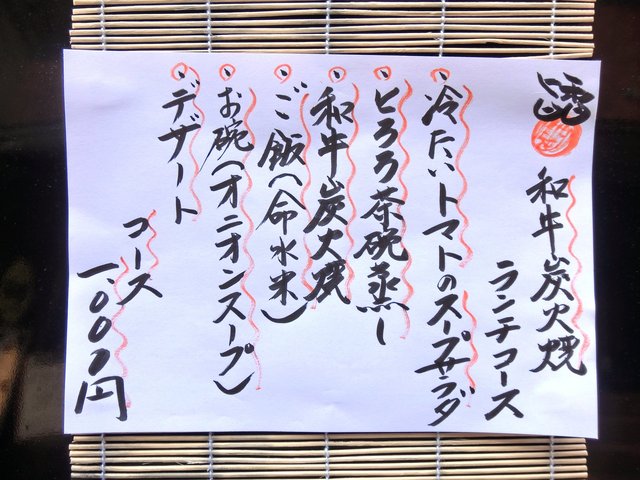 和牛炭火焼
ランチコース
・冷たいトマトのスープサラダ
・とろろ茶碗蒸し
・和牛炭火焼
・ご飯(命水米)
・お碗(オニオンスープ)
・デザート
コース
一、〇〇〇円